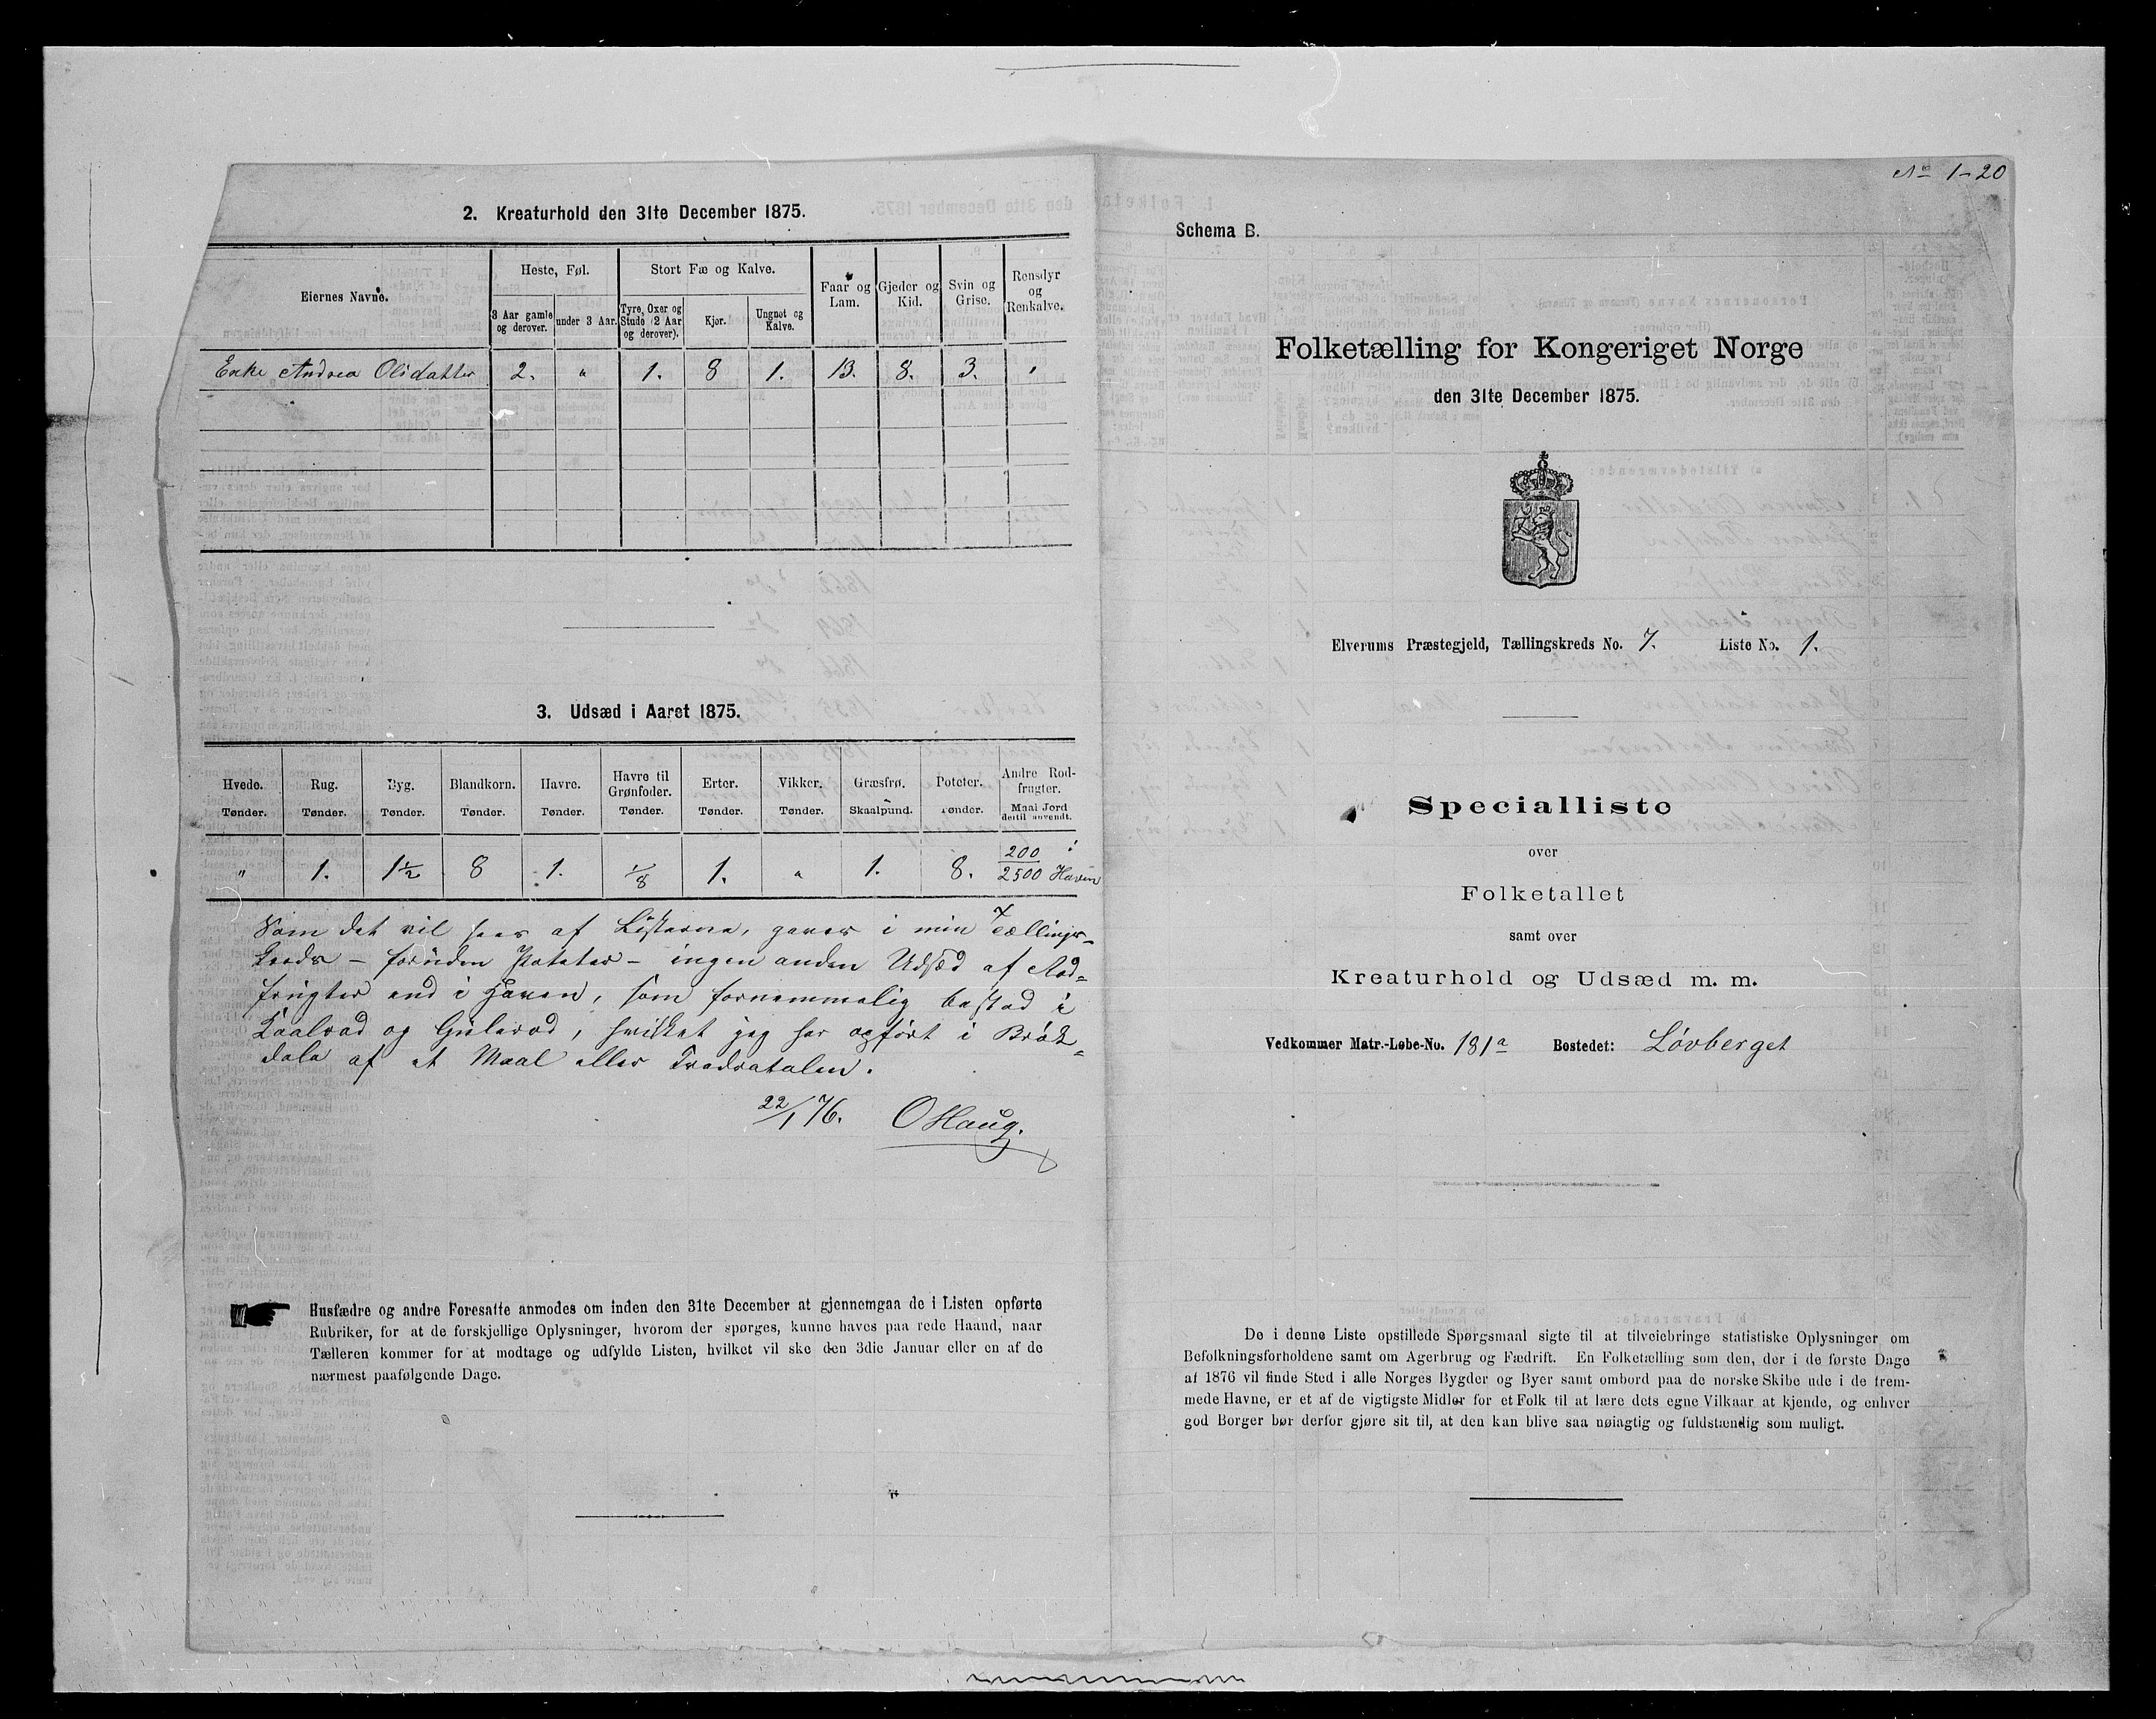 2. Kreaturhold den 31te December 1875.
Eiernes Navne.
Heste, Føl.
Stort Fæ og Kalve.
Faar og Lam.
Gjeder og Kid.
Svin og Grise.
Rensdyr og Renkalve.
3 Aar gamle og derover.
under 3 Aar.
Tyre, Oxer og Stude (2 Aar og derover).
Kjør.
Ungnøt og Kalve.
Enke Andrea Olsdatter 2. " 1. 8 1. 13. 8. 3. "
3. Udsæd i Aaret 1875.
Hvede. Rug. Byg. Blandkorn. Havre. Havre til Grønfoder. Erter. Vikker. Græsfrø. Poteter. Andre Rodfrugter.
Tønder. Tønder. Tønder. Tønder. Tønder. Tønder. Tønder. Tønder. Skaalpund. Tønder. Maal Jord dertil anvendt.
" 1. 1½ 8 1. 1/8 1. " 1. 8. 200/2500 i Haven
Som det vil sees af Listerne, gaves i min Tællings-
kreds – foruden Poteter – ingen anden Udsæd af Rod-
frugter end i Haven, som fornemmelig bestod i
Kaalrod og Gulerod, hvilket jeg har opført i Brøk-
dele af et Maal eller Qvadratalen.
22/1 76. O Haug.
Husfædre og andre Foresatte anmodes om inden den 31te December at gjennemgaa de i Listen opførte
Rubriker, for at de forskjellige Oplysninger, hvorom der spørges, kunne haves paa rede Haand, naar
Tælleren kommer for at modtage og udfylde Listen, hvilket vil ske den 3die Januar eller en af de
nærmest paafølgende Dage.
No 1-20
Schema B.
Folketælling for Kongeriget Norge
den 31te December 1875.
Elverums Præstegjeld, Tællingskreds No. 7. Liste No. 1.
Specialliste
over
Folketallet
samt over
Kreaturhold og Udsæd m. m.
Vedkommer Matr.-Løbe-No. 181a Bostedet: Løvberget
De i denne Liste opstillede Spørgsmaal sigte til at tilveiebringe statistiske Oplysninger om
Befolkningsforholdene samt om Agerbrug og Fædrift. En Folketælling som den, der i de første Dage
af 1876 vil finde Sted i alle Norges Bygder og Byer samt ombord paa de norske Skibe ude i de frem-
mede Havne, er et af de vigtigste Midler for et Folk til at lære dets egne Vilkaar at kjende, og enhver
god Borger bør derfor gjøre sit til, at den kan blive saa nøiagtig og fuldstændig som muligt.